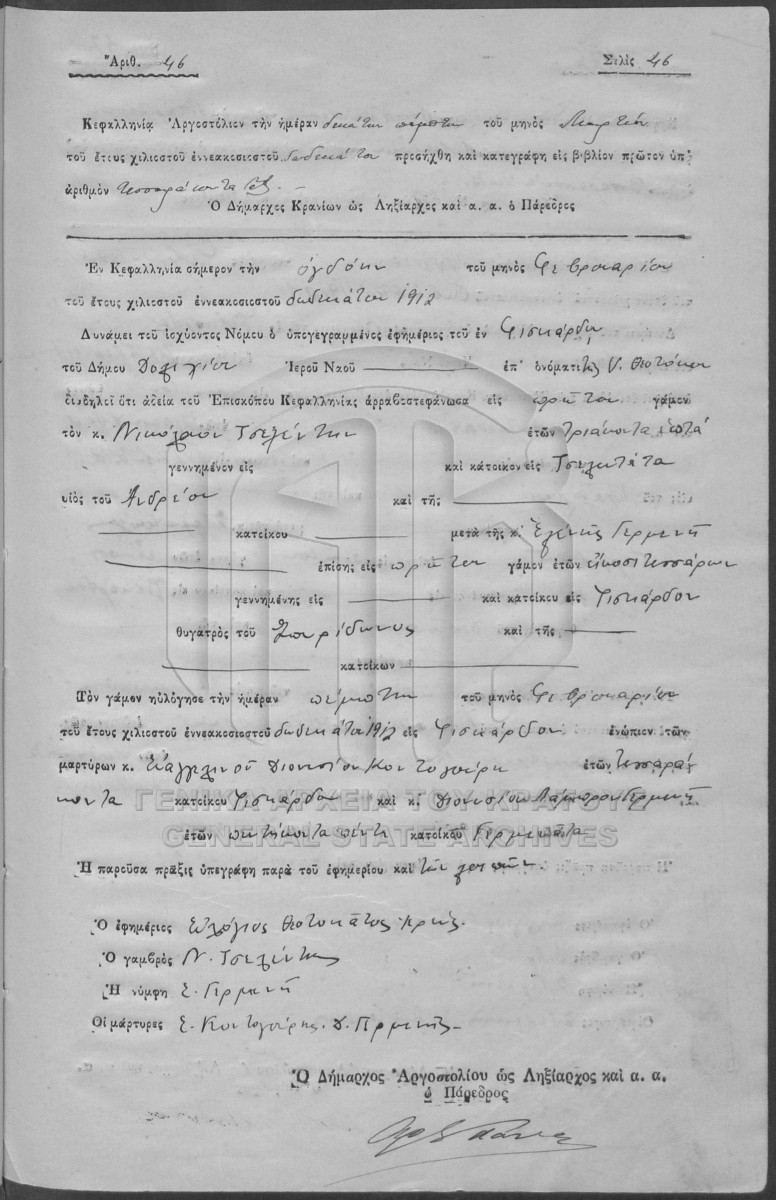 Ἀριθ. 46 Σελὶς 46
Κεφαλληνίᾳ Ἀργοστόλιον τὴν ἡμέραν δεκάτην πέμπτην τοῦ μηνὸς Μαρτίου
τοῦ ἔτους χιλιοστοῦ ἐννεακοσιοστοῦ δωδεκάτου προσήχθη καὶ κατεγράφη εἰς βιβλίον πρῶτον ὑπ'
ἀριθμὸν τεσσαράκοντα ἕξ. —
Ὁ Δήμαρχος Κρανίων ὡς Ληξίαρχος καὶ α. α. ὁ Πάρεδρος
Ἐν Κεφαλληνίᾳ σήμερον τὴν ὀγδόην τοῦ μηνὸς Φεβρουαρίου
τοῦ ἔτους χιλιοστοῦ ἐννεακοσιοστοῦ δωδεκάτου 1912
Δυνάμει τοῦ ἰσχύοντος Νόμου ὁ ὑπογεγραμμένος ἐφημέριος τοῦ ἐν Φισκάρδῳ
τοῦ Δήμου Δολιχίου Ἱεροῦ Ναοῦ ἐπ' ὀνόματι τῆς Υ. Θεοτόκου
διαδηλοῖ ὅτι ἀδείᾳ τοῦ Ἐπισκόπου Κεφαλληνίας ἀρραβοστεφάνωσα εἰς πρῶτον γάμον
τὸν κ. Νικόλαον Τσελέντην ἐτῶν τριάκοντα ἑπτά
γεννημένον εἰς καὶ κάτοικον εἰς Τσελεντάτα
υἱὸς τοῦ Ἀνδρέου καὶ τῆς
κατοίκου μετὰ τῆς κ. Ἑλένης Γερμενῆ
ἐπίσης εἰς πρῶτον γάμον ἐτῶν εἴκοσι τεσσάρων
γεννημένης εἰς καὶ κατοίκου εἰς Φισκάρδον
θυγατρὸς τοῦ Σπυρίδωνος καὶ τῆς
κατοίκων
Τὸν γάμον ηὐλόγησε τὴν ἡμέραν πέμπτην τοῦ μηνὸς Φεβρουαρίου
τοῦ ἔτους χιλιοστοῦ ἐννεακοσιοστοῦ δωδεκάτου 1912 εἰς Φισκάρδον ἐνώπιον τῶν
μαρτύρων κ. Εὐαγγελινοῦ Διονυσίου Κοντογούρη ἐτῶν τεσσαρά
κοντα κατοίκου Φισκάρδου καὶ κ. Διονυσίου Λάμπρου Γερμενῆ
ΓΕΝΙΚΑ ΑΡΧΕΙΑ ΤΟΥ ΚΡΑΤΟΥΣ
GENERAL STATE ARCHIVES
ἐτῶν πεντήκοντα πέντε κατοίκου Γερμενάτα
Ἡ παροῦσα πρᾶξις ὑπεγράφη παρὰ τοῦ ἐφημερίου καὶ τῶν λοιπῶν.
Ὁ ἐφημέριος Εὐλόγιος Θεοτοκᾶτος
Ὁ γαμβρὸς Ν. Τσελέντης
Ἡ νύμφη Ε. Γερμενῆ
Οἱ μάρτυρες Ε. Κοντογούρης. Δ. Γερμενῆς
Ὁ Δήμαρχος Ἀργοστολίου ὡς Ληξίαρχος καὶ α. α.
ὁ Πάρεδρος